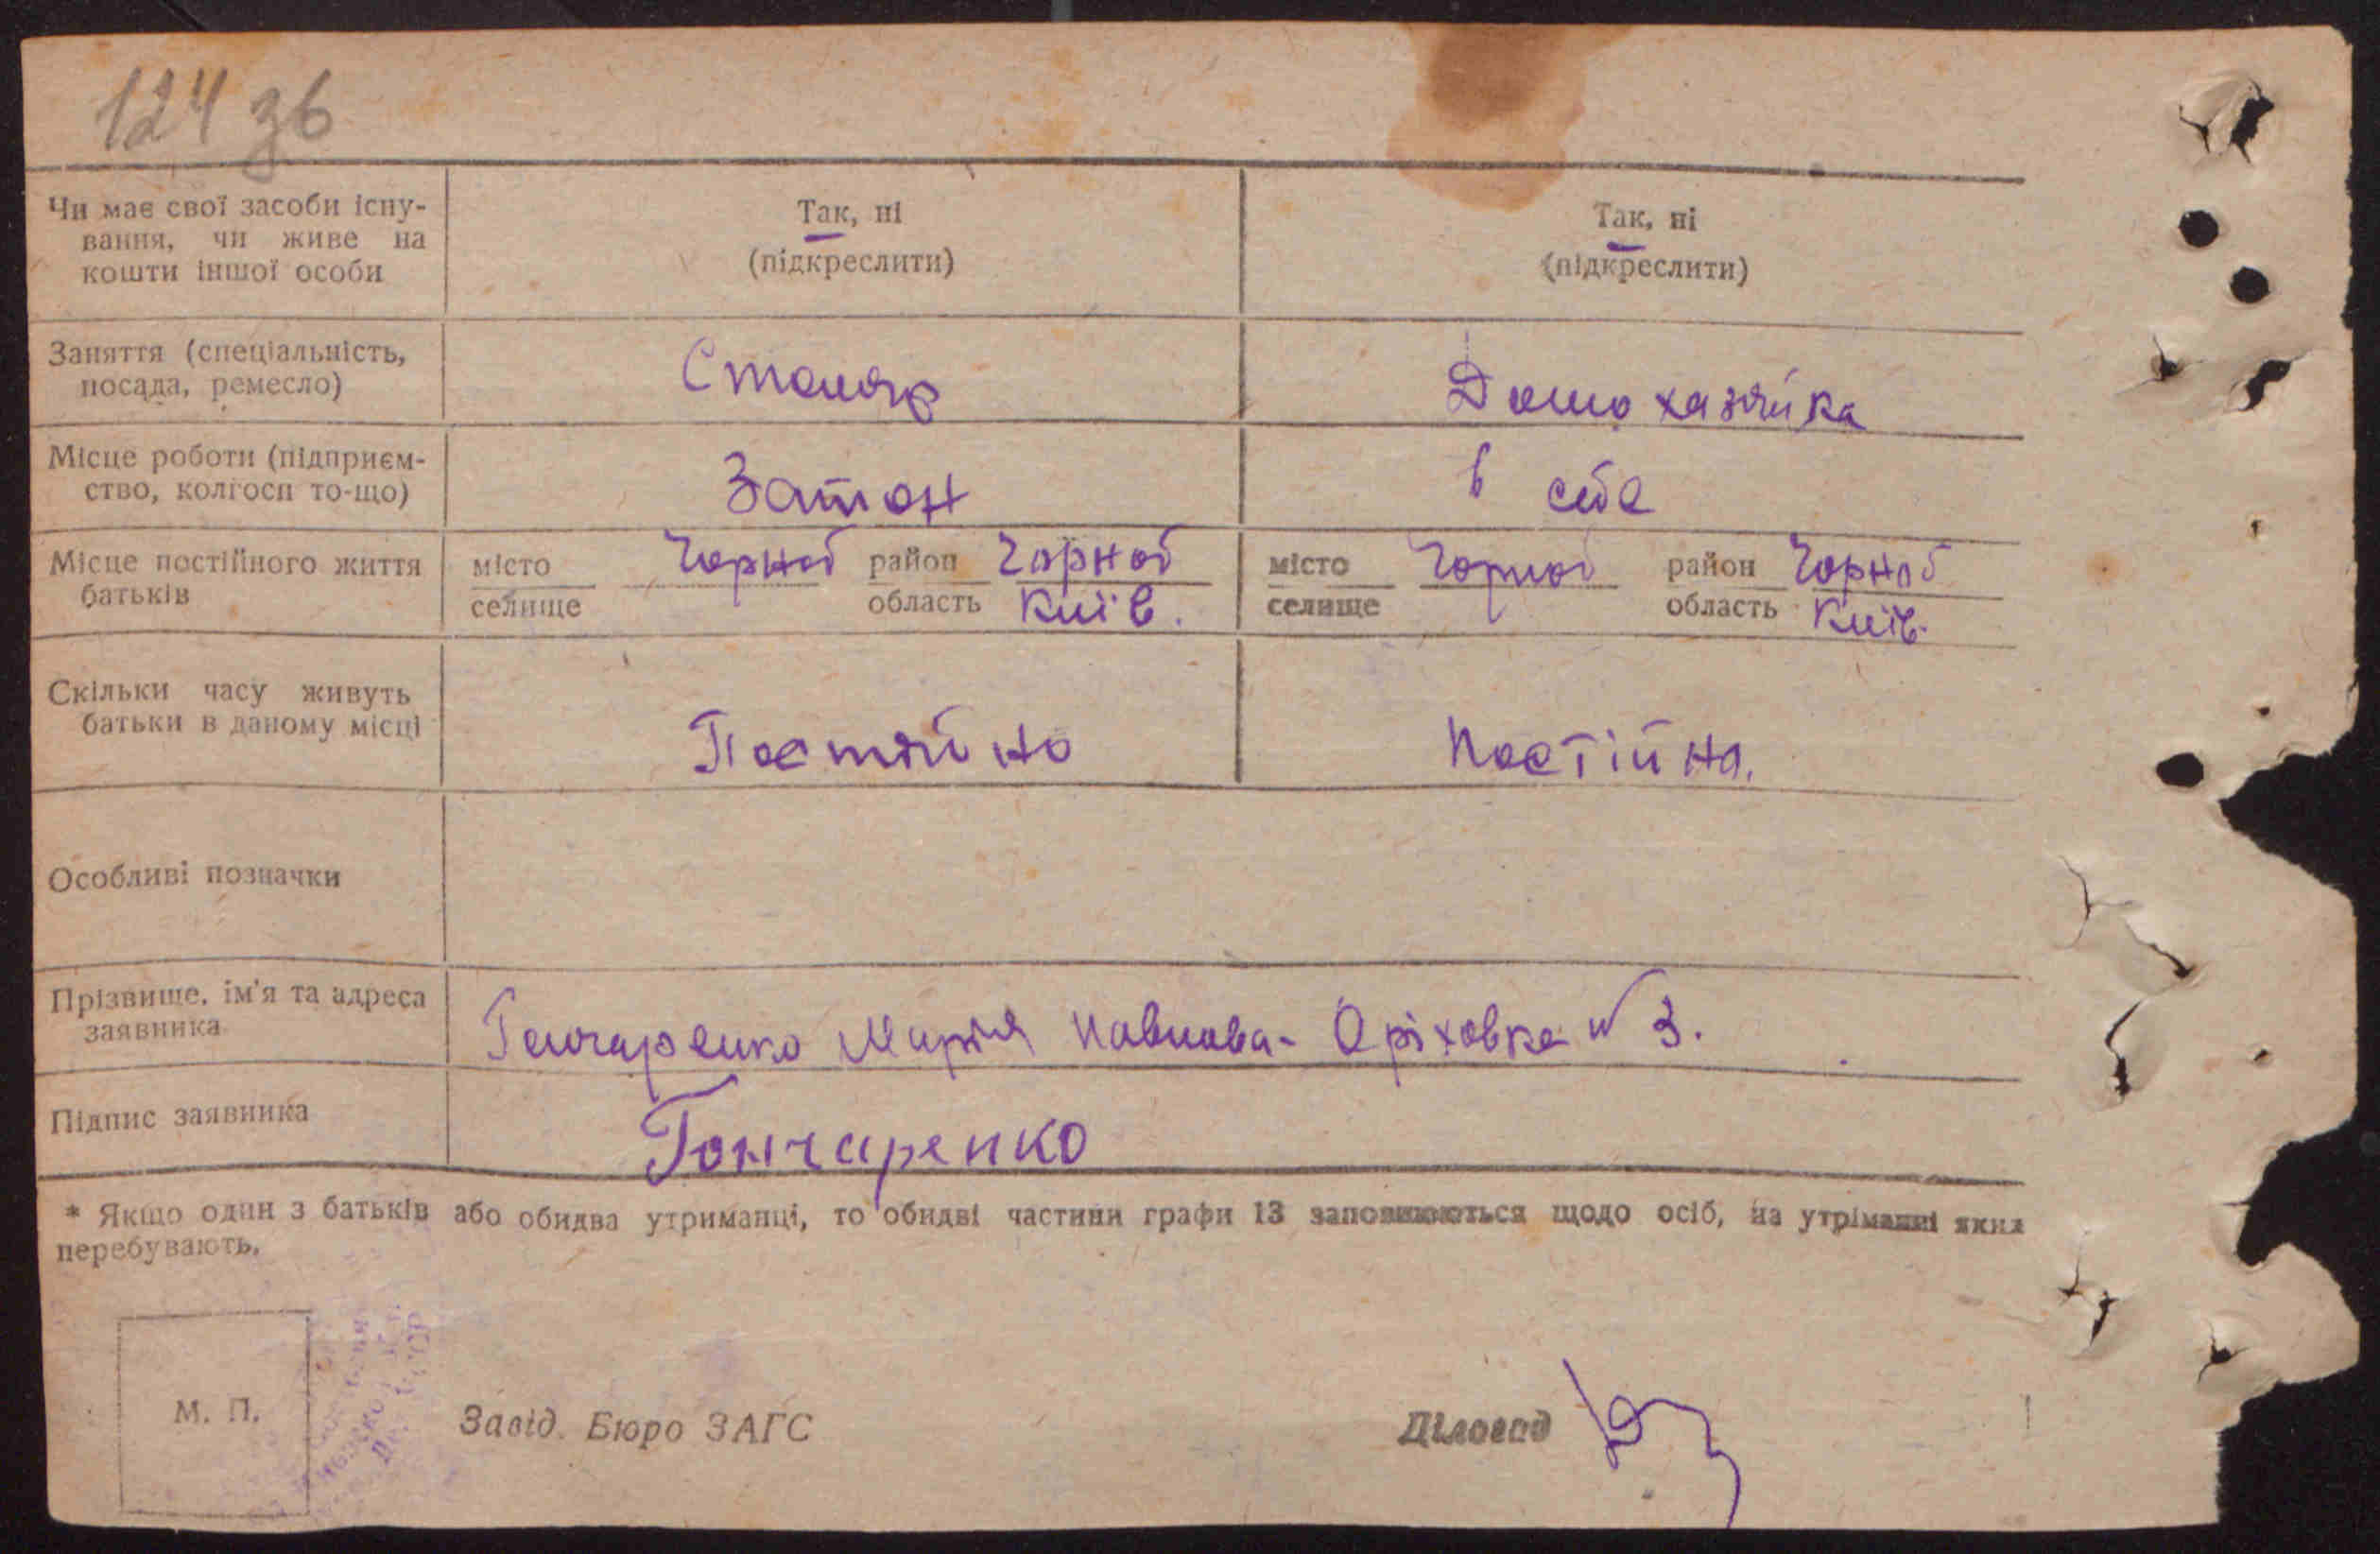 124 зв
Чи має свої засоби існу-
вання, чи живе на
кошти іншої особи
Так, ні
(підкреслити)
Так, ні
(підкреслити)
Заняття (спеціальність,
посада, ремесло)
Столяр
Домохазяйка
Місце роботи (підприєм-
ство, колгосп то-що)
Затон
в себе
Місце постійного життя
батьків
місто
селище
Чорноб
район Чорноб
область Київ.
місто
селище
Чорноб
район Чорноб
область Київ.
Скільки часу живуть
батьки в даному місці
Постійно
Постійно.
Особливі позначки
Прізвище, ім'я та адреса
заявника
Гончаренко Марія Павлова - Оріховка № 3.
Підпис заявника
Гончаренко
* Якщо один з батьків або обидва утриманці, то обидві частини графи 13 заповнюються щодо осіб, на утріманні яких
перебувають.
М. П.
Завід. Бюро ЗАГС
Діловод